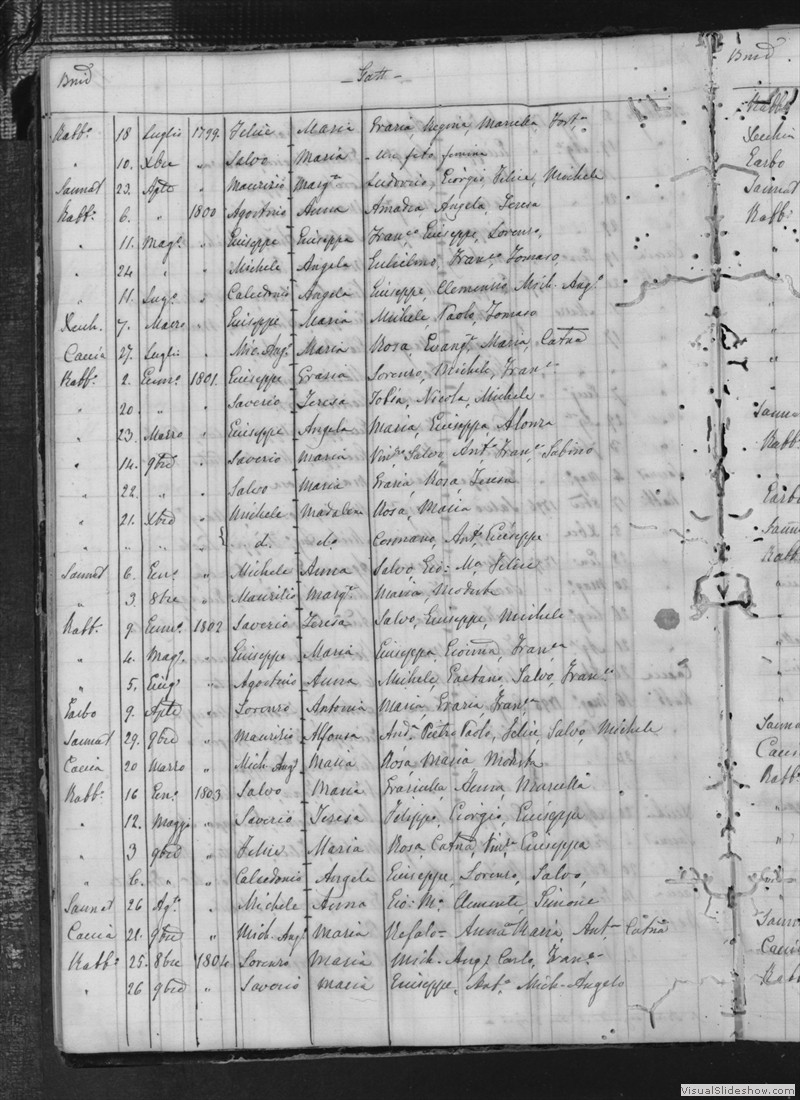 Bmd — Fatt —
Rabb.o 18 Luglio 1799. Felice Maria Grazia, Regina, Mariella, Fort.a
" 10. Xbre " Salvo Maria
Sannat 23. Aple " Maurizio Marg.ta Ludovico, Giorgio, Felice, Michele
Rabb.o 6. " 1800 Agostino Anna Amadea Angela, Teresa
" 11. Mag.o " Giuseppe Giuseppa Fran.co Giuseppe, Lorenzo,
" 24 " " Michele Angela Gulielmo, Fran.co Tomaso,
" 11. Lug.o " Calcedonio Angela Giuseppe, Clemenzio, Mich. Ang.o
Xeuk. 7. Marzo " Giuseppe Maria Michele, Paolo, Tomaso
Caccia 27. Luglio " Mic. Ang.o Maria Rosa, Evang.ta Maria, Catna
Rabb.o 2. Genn.o 1801. Giuseppe Grazia Lorenzo, Michele, Fran.co
" 20. " " Saverio Teresa Tobia, Nicola, Michele
" 23. Marzo " Giuseppe Angela Maria, Giuseppa Alonza
" 14. 9bre " Saverio Maria Vin.zo Salvo Ant.o Fran.co Sabino
" 22. " " Salvo Maria Grazia Rosa, Teresa
" 21. Xbre " Michele Madalena Rosa, Maria
" " " " { d. do Cosmano, Ant.o Giuseppe
Sannat 6. Gen.o " Michele Anna Salvo, Gio: Ma Felice
" 3. 8bre " Maurizio Marg.ta Maria, Modesta
Rabb.o 9 Genn.o 1802 Saverio Teresa Salvo, Giuseppe, Michele
" 4. Mag.o " Giuseppe Maria Giuseppa, Fran.ca
" 5. Giug.o " Agostino Anna Michele, Gaetano, Salvo, Fran.co
Garbo 9. Aple " Lorenzo Antonia Maria, Grazia, Fran.ca
Sannat 29. 9bre " Maurizio Alfonsa And.a Pietro Paolo, Felice, Salvo, Michele
Caccia 20 Marzo " Mich. Ang.o Maria Rosa, Maria Modesta
Rabb.o 16 Gen.o 1803 Salvo Maria Graziulla, Anna, Mariella
" 12. Maggo " Saverio Teresa Filippo, Giorgio, Giuseppe
" 3 9bre " Felice Maria Rosa, Catna, Vin.za Giuseppa
" 6. " " Calcedonio Angela Giuseppe, Lorenzo, Salvo,
Sannat 26 Ag.to " Michele Anna Gio: Ma Clemente, Simone
Caccia 21. 9bre " Mich. Ang.o Maria Anna Maria, Ant.a Catna
Rabb.o 25. 8bre 1804 Lorenzo Maria Mich. Ang.o Carlo, Fran.co
" 26 9bre " Saverio Maria Giuseppe, Ant.o Mich. Angelo
Bmd.
Rabb.o
Xeuchia
Garbo
Sannat
Rabb.o
Sanna
Rabb.
Garbo
Sanna
Rabb.
Sannat
Cacci
Rabb.
Sanna
Cacci
Rabb
VisualSlideshow.com